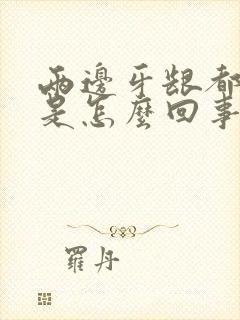 兩邊牙齦都
是怎麼回事
羅丹